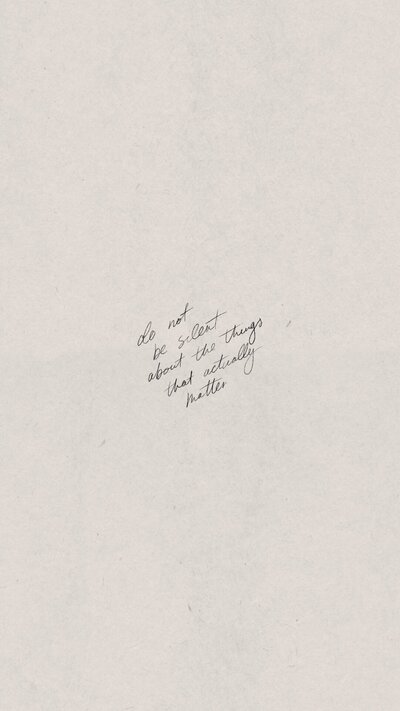 do not
be silent
about the things
that actually
matter